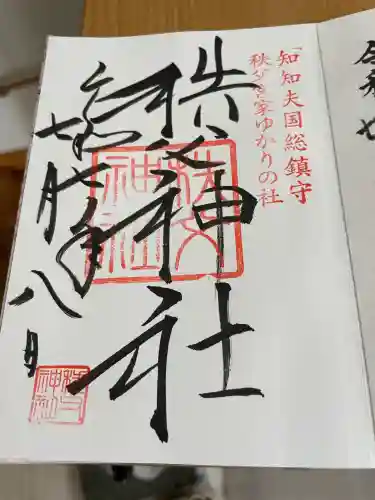 知知夫国総鎮守
秩父宮家ゆかりの社
秩父神社
秩父
神社
令和七年
七月八日
秩父
神社
令和七